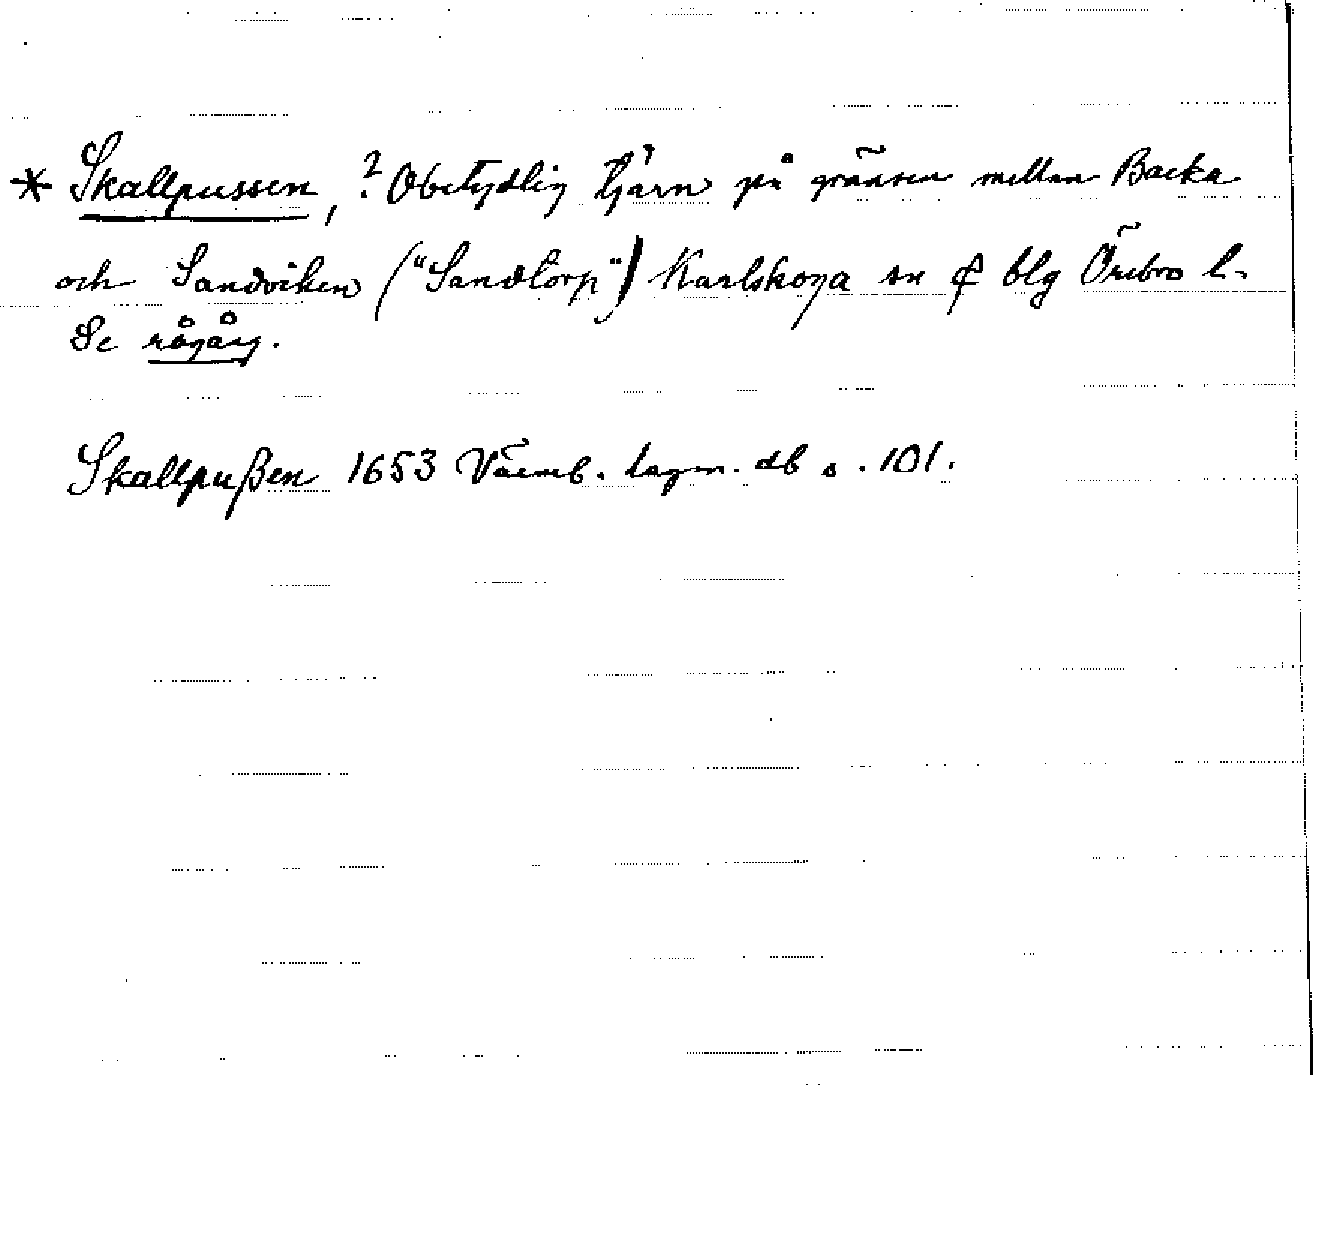 * Skallpussen, ? Obetydlig tjärn på gränsen mellan Backa
och Sandviken ("Sandtorp") Karlskoga sn o blg Örebro l.
Se rågång.
Skallpußen 1653 Värml. lagm. db s. 101.